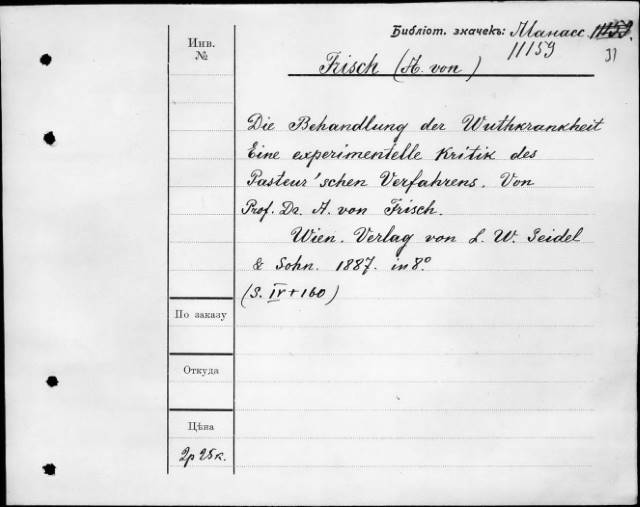 Библіот. значекъ: Манасс. 11159.
11159
31
Инв.
№
Frisch (A. von)
Die Behandlung der Wuthkrankheit
Eine experimentelle Kritik des
Pasteur'schen Verfahrens. Von
Prof. Dr. A. von Frisch.
Wien. Verlag von L. W. Seidel
& Sohn. 1887. in 8°
(S. IV + 160)
По заказу
Откуда
Цѣна
2р 25к.